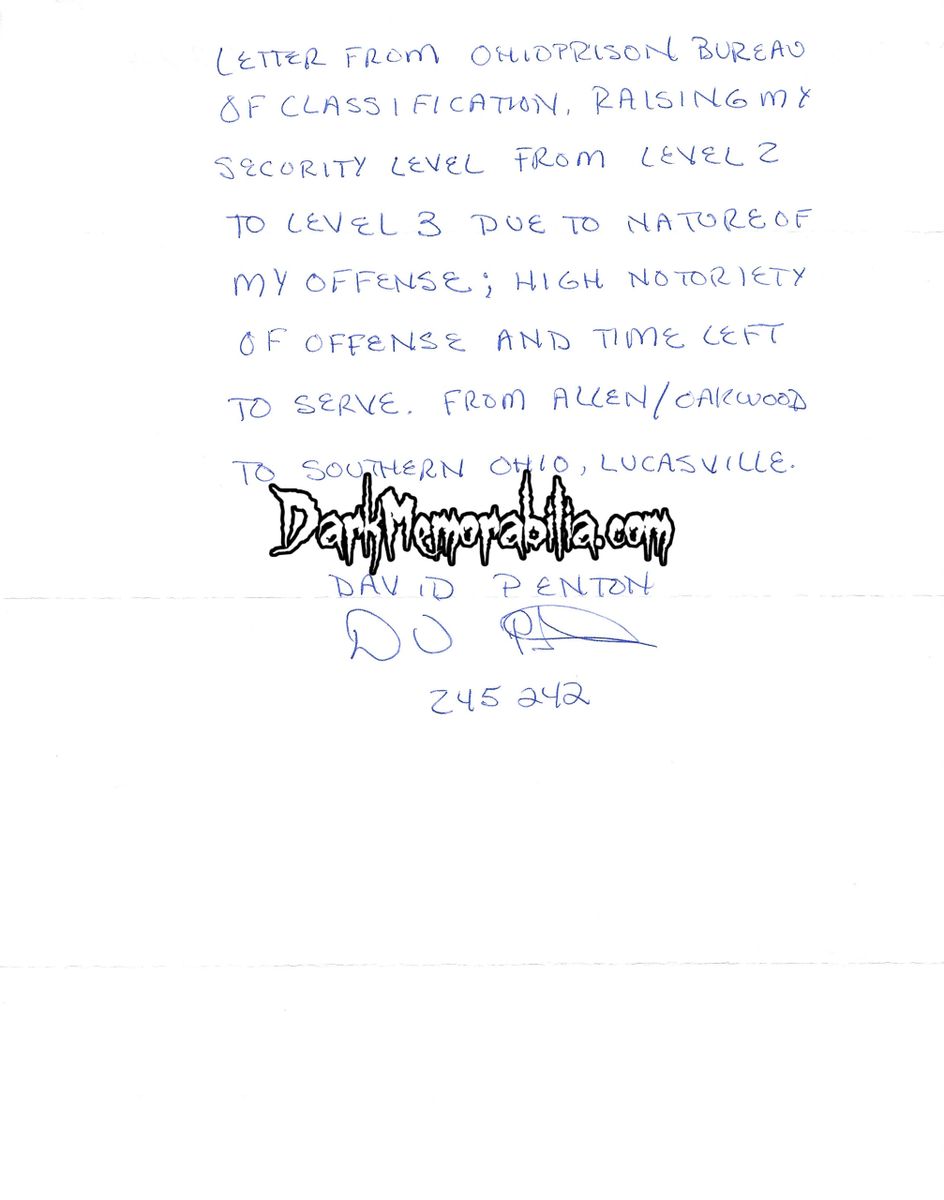 LETTER FROM OHIOPRISON BUREAU
OF CLASSIFICATION, RAISING MY
SECURITY LEVEL FROM LEVEL 2
TO LEVEL 3 DUE TO NATURE OF
MY OFFENSE; HIGH NOTORIETY
OF OFFENSE AND TIME LEFT
TO SERVE. FROM ALLEN/OAKWOOD
TO SOUTHERN OHIO, LUCASVILLE.
DarkMemorabilia.com
DAVID PENTON
245242